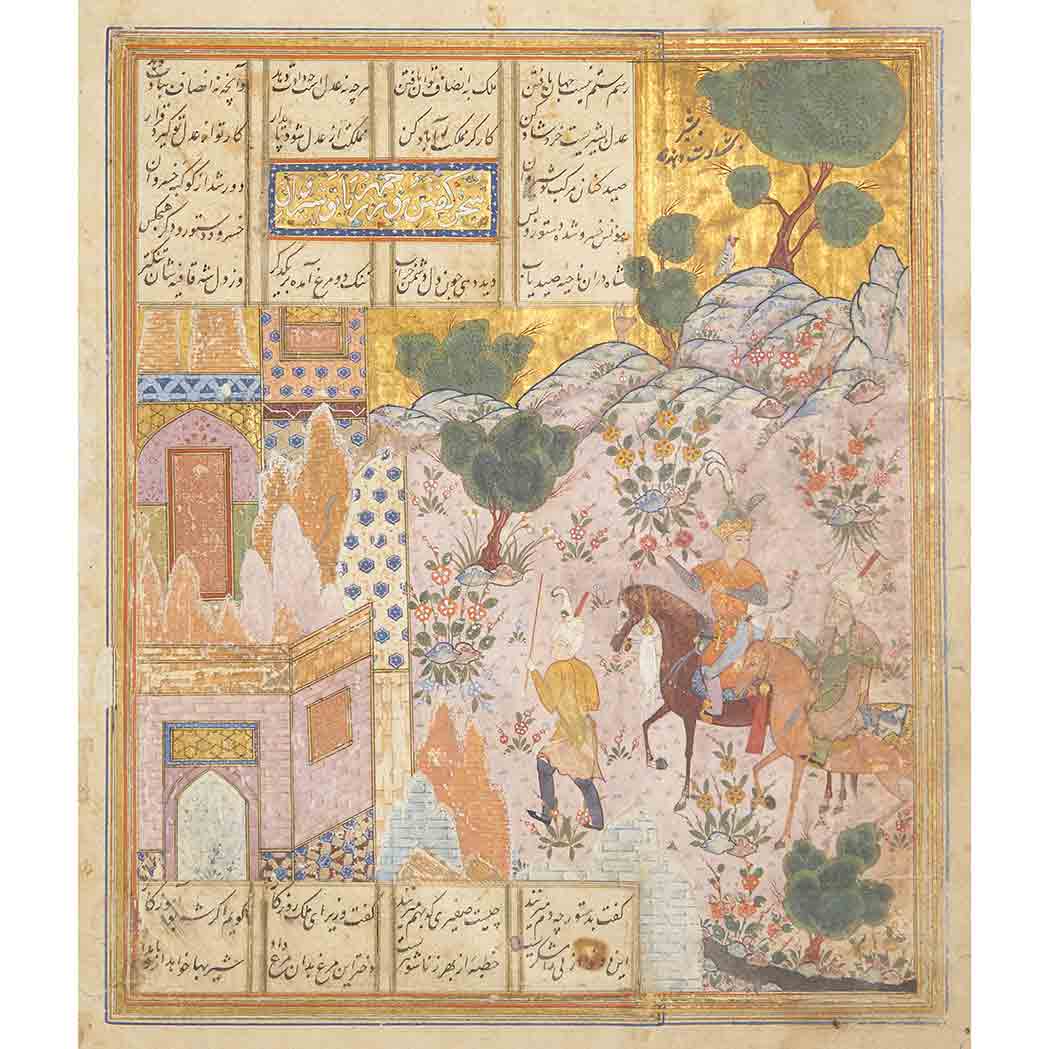 رسم ستم نیست جهان یافتن ملک به انصاف توان یافتن هرچه نه عدل است چه دادت دهد وآنچه نه انصاف ببادت دهد
عدل بشیریست خرد شاد کن کارگر مملکت آباد کن مملکت از عدل شود پایدار کار تو از عدل تو گیرد قرار
صید کنان مرکب نوشیروان دور شد از کوکبه خسروان
مونس خسرو شده دستور و بس خسرو و دستور و دگر هیچکس
شاه در آن ناحیه صید یاب دید دهی چون دل دشمن خراب تنگ دو مرغ آمده در یکدگر وز دل شه قافیه شان تنگتر
گفت بدستور چه دم میزنند چیست صفیری که بهم میزنند گفت وزیر ای ملک روزگار گویم اگر شه بود آموزگار
این دو نوا از پی رامشگریست خطبه از بهر زناشوهریست دختر این مرغ بدان مرغ داد شیربها خواهد از او بامداد